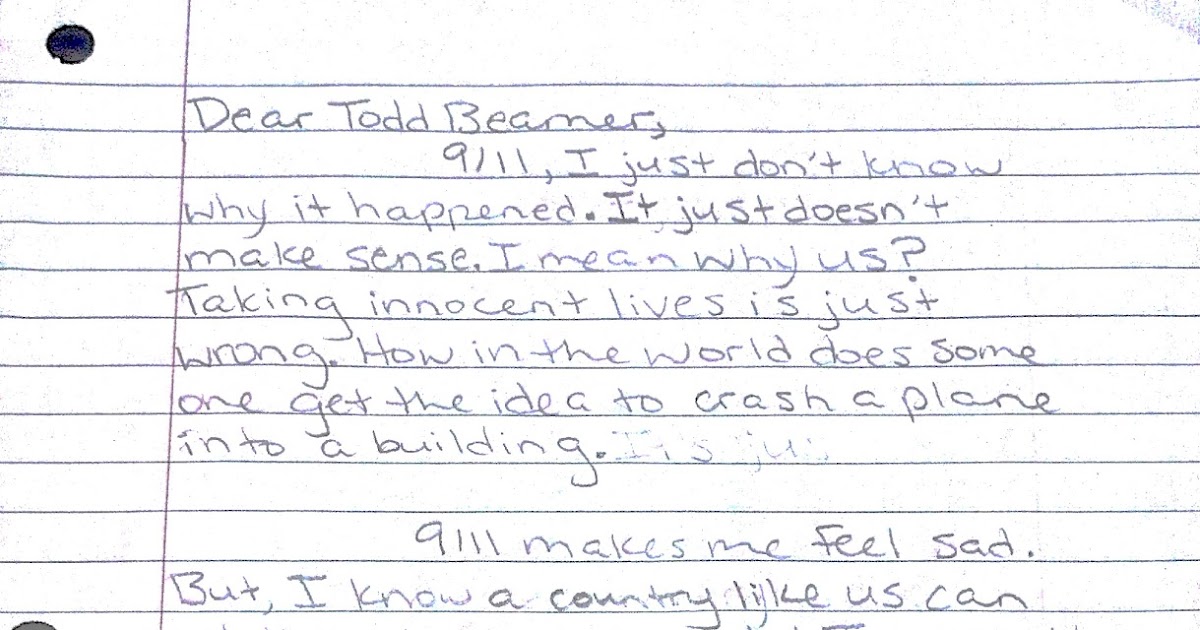 Dear Todd Beamer,
9/11, I just don't know
why it happened. It just doesn't
make sense. I mean why us?
Taking innocent lives is just
wrong. How in the world does some
one get the idea to crash a plane
into a building.
9111 makes me feel sad.
But, I know a country lijke us can